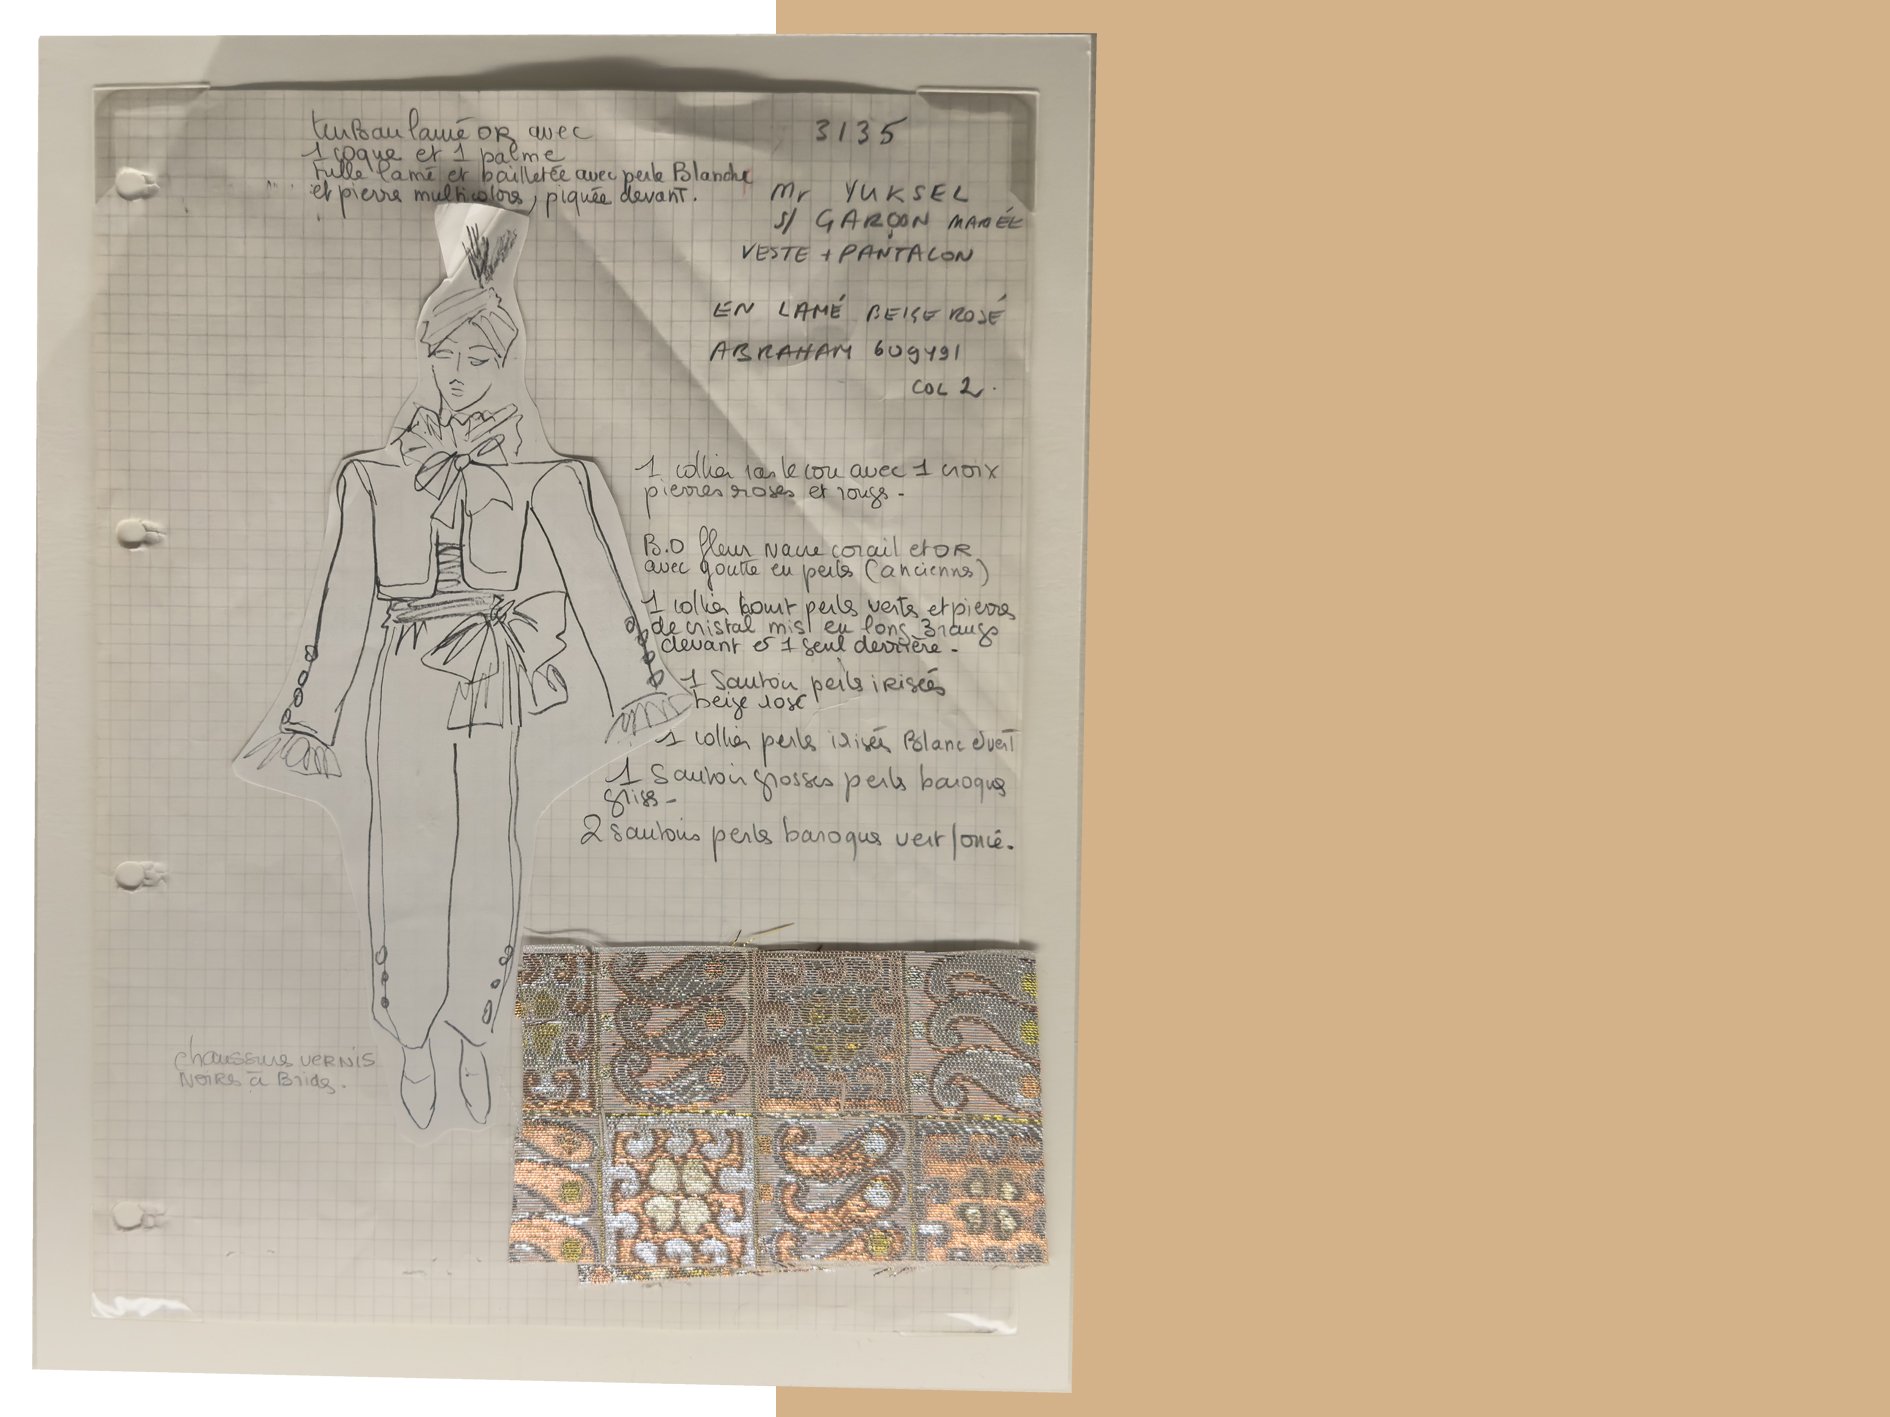 turban lamé OR avec
1 coque et 1 palme
tulle lamé et pailletée avec perle Blanche
et pierre multicolors, piquée devant.
3135
Mr YUKSEL
s/ GARÇON MARIÉE
VESTE + PANTALON
EN LAMÉ BEIGE ROSÉ
ABRAHAM 609491
COL 2.
1 collier ras le cou avec 1 croix
pierres roses et rouges -
B.O fleur Nacre corail et OR
avec goutte en perles (anciennes)
1 collier court perles vertes et pierres
de cristal mis en long 3 rangs
devant et 1 seul derrière -
1 Sautoir perles irisées
beige rosé
1 collier perles irisées Blanc et vert
1 Sautoir grosses perles baroques
grises -
2 sautoirs perles baroques vert foncé.
chaussures VERNIS
NOIRES à Brides.